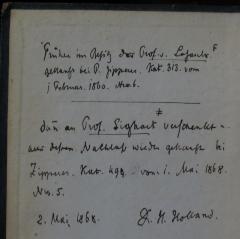 Früher im Besitz des Prof. v. Lasaulx
gekauft bei P. Zipperer. Kat. 313. vom
1 Februar. 1860.
dann an Prof. Sighart verschenkt u.
aus dessen Nachlaß wieder gekauft bei
Zipperer. Kat. 498. vom 1. Mai 1868.
Nro. 5.
2. Mai 1868. Dr. H. Holland.